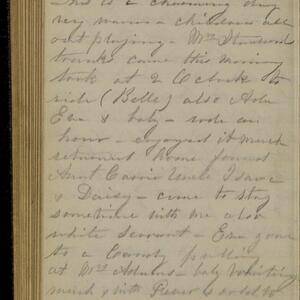 This is a charming day
very warm - children all
out playing - Mrs
trunks came this morning
took at 2 O'clock to
ride (Belle) also Ada
Eva & baby - rode an
hour - enjoyed it much
returned home found
Aunt Carrie Uncle Isaac
& Daisy - come to stay
sometime with me also
white servant - Eva gone
to a Candy pulling
at Mrs - baby
much &